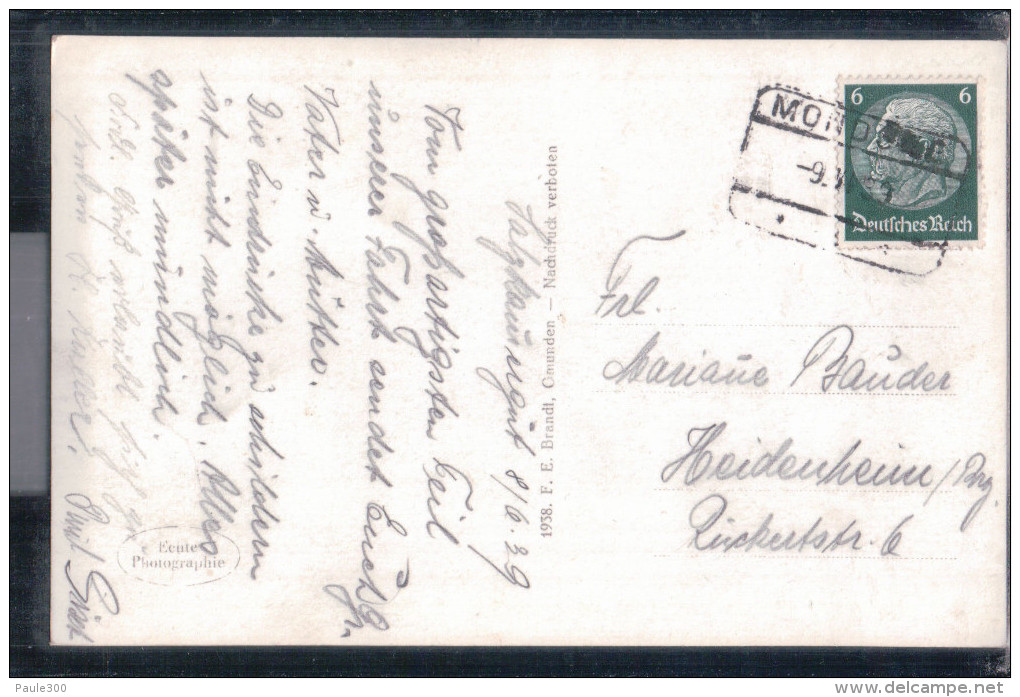 Salzkammergut 8/6.39
Vom großartigsten Teil
unserer Fahrt sendet Euch Ihr
Vater u. Mutter.
Die Eindrücke zu schildern
ist nicht möglich. Alles
später mündlich.
Gruß
1938. F. E. Brandt, Gmunden — Nachdruck verboten
Echte
Photographie
MONDSEE
-9.
6 6
Deutsches Reich
Frl.
Mariane Bäuder
Heidenheim/Brz.
Rückertstr. 6
Paule300
delcampe.net